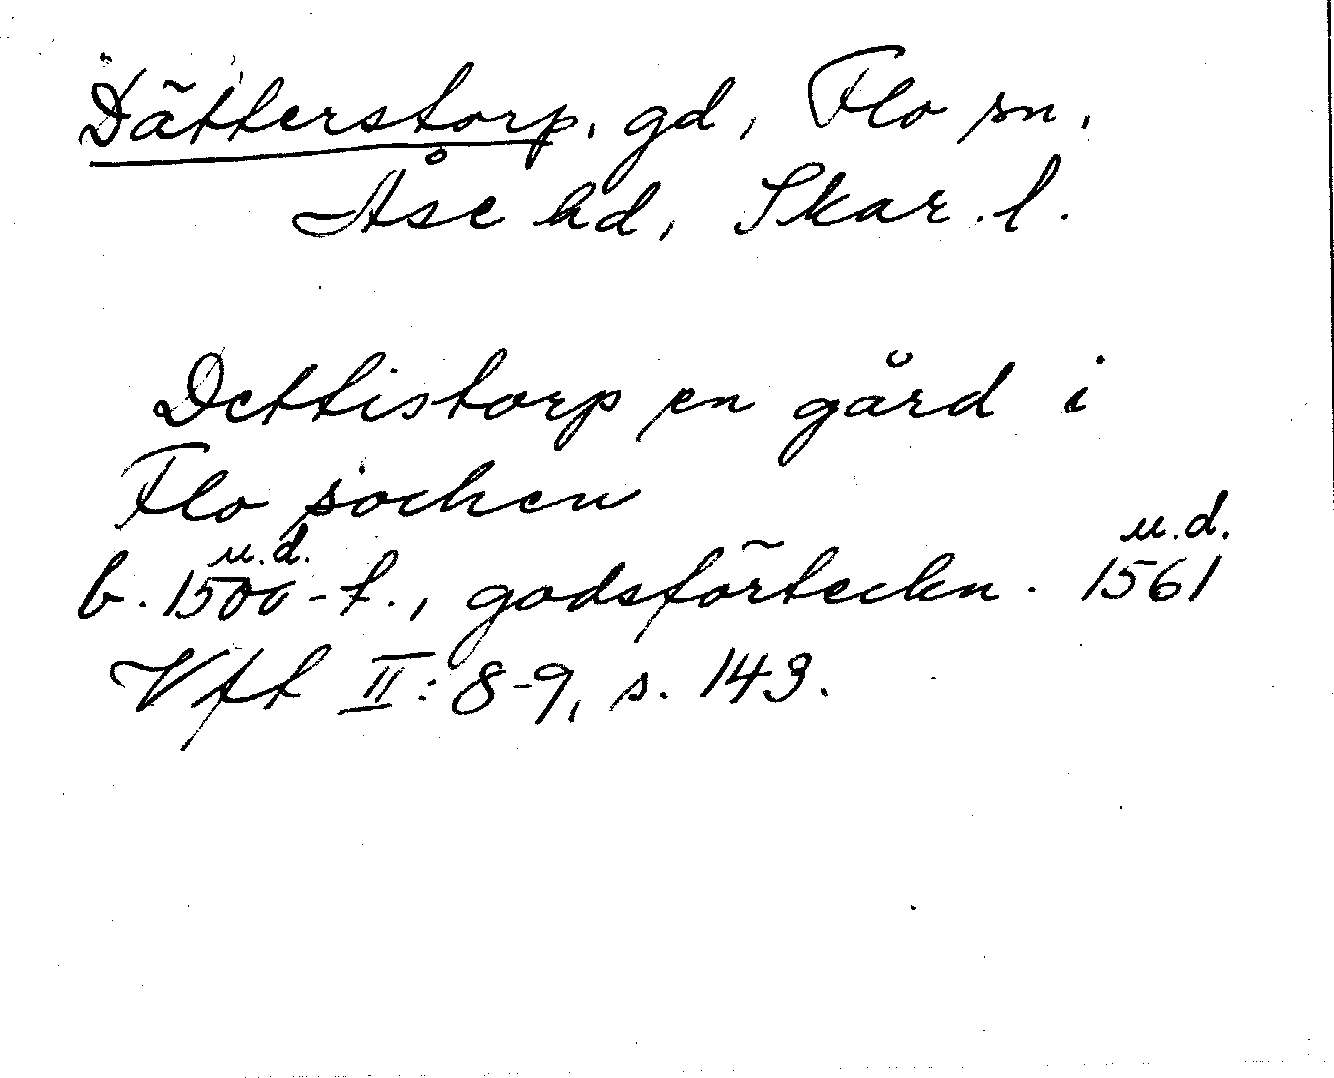 Dätterstorp, gd, Flo sn,
Åse hd, Skar. l.
Dettistorp en gård i
Flo sochen
u.d. u.d.
b. 1500-t., godsförteckn. 1561
Vft II: 8-9, s. 143.